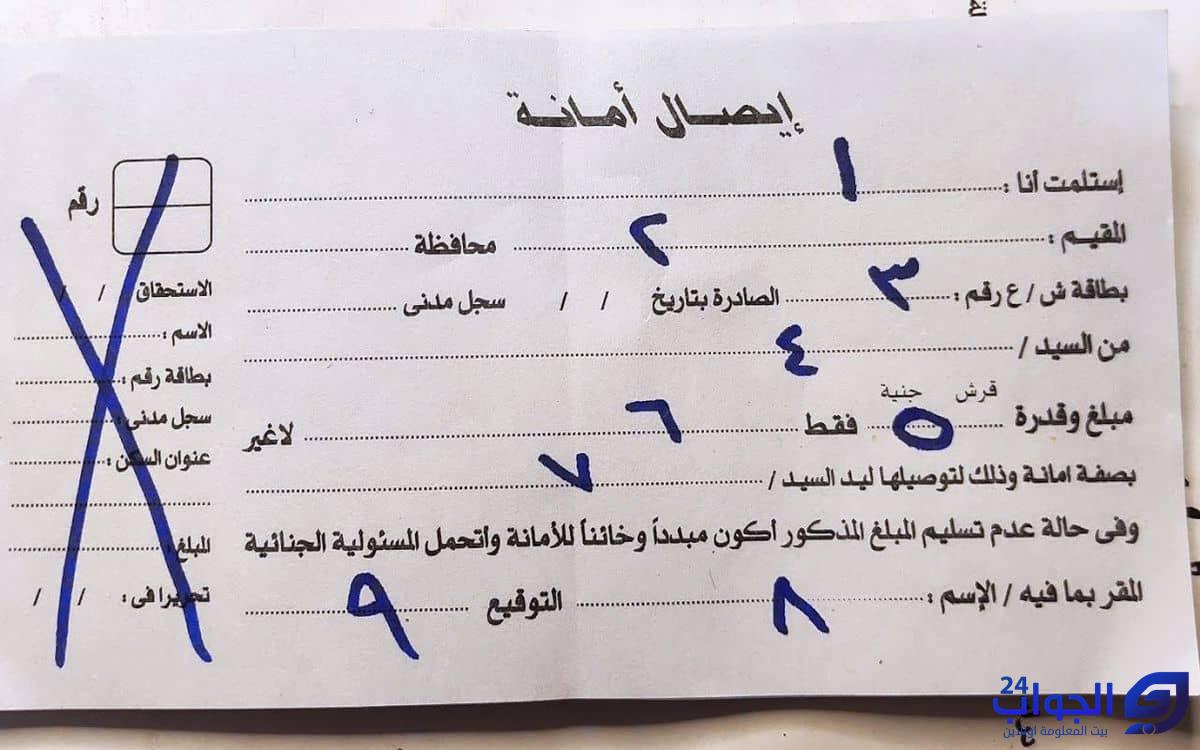 إيصال أمانة
إستلمت أنا : ١
المقيم : ٢ محافظة
بطاقة ش / ع رقم : ٣ الصادرة بتاريخ / / سجل مدنى
من السيد / ٤
قرش جنية
مبلغ وقدرة ٥ فقط ٦ لاغير
بصفة امانة وذلك لتوصيلها ليد السيد / ٧
وفى حالة عدم تسليم المبلغ المذكور اكون مبدداً وخائناً للأمانة وأتحمل المسئولية الجنائية
المقر بما فيه / الإسم : ٨ التوقيع ٩
رقم
الاستحقاق / /
الاسم :
بطاقة رقم :
سجل مدنى :
عنوان السكن :
المبلغ :
تحريرا فى : / /
الجواب 24
بيت المعلومة اونلاين